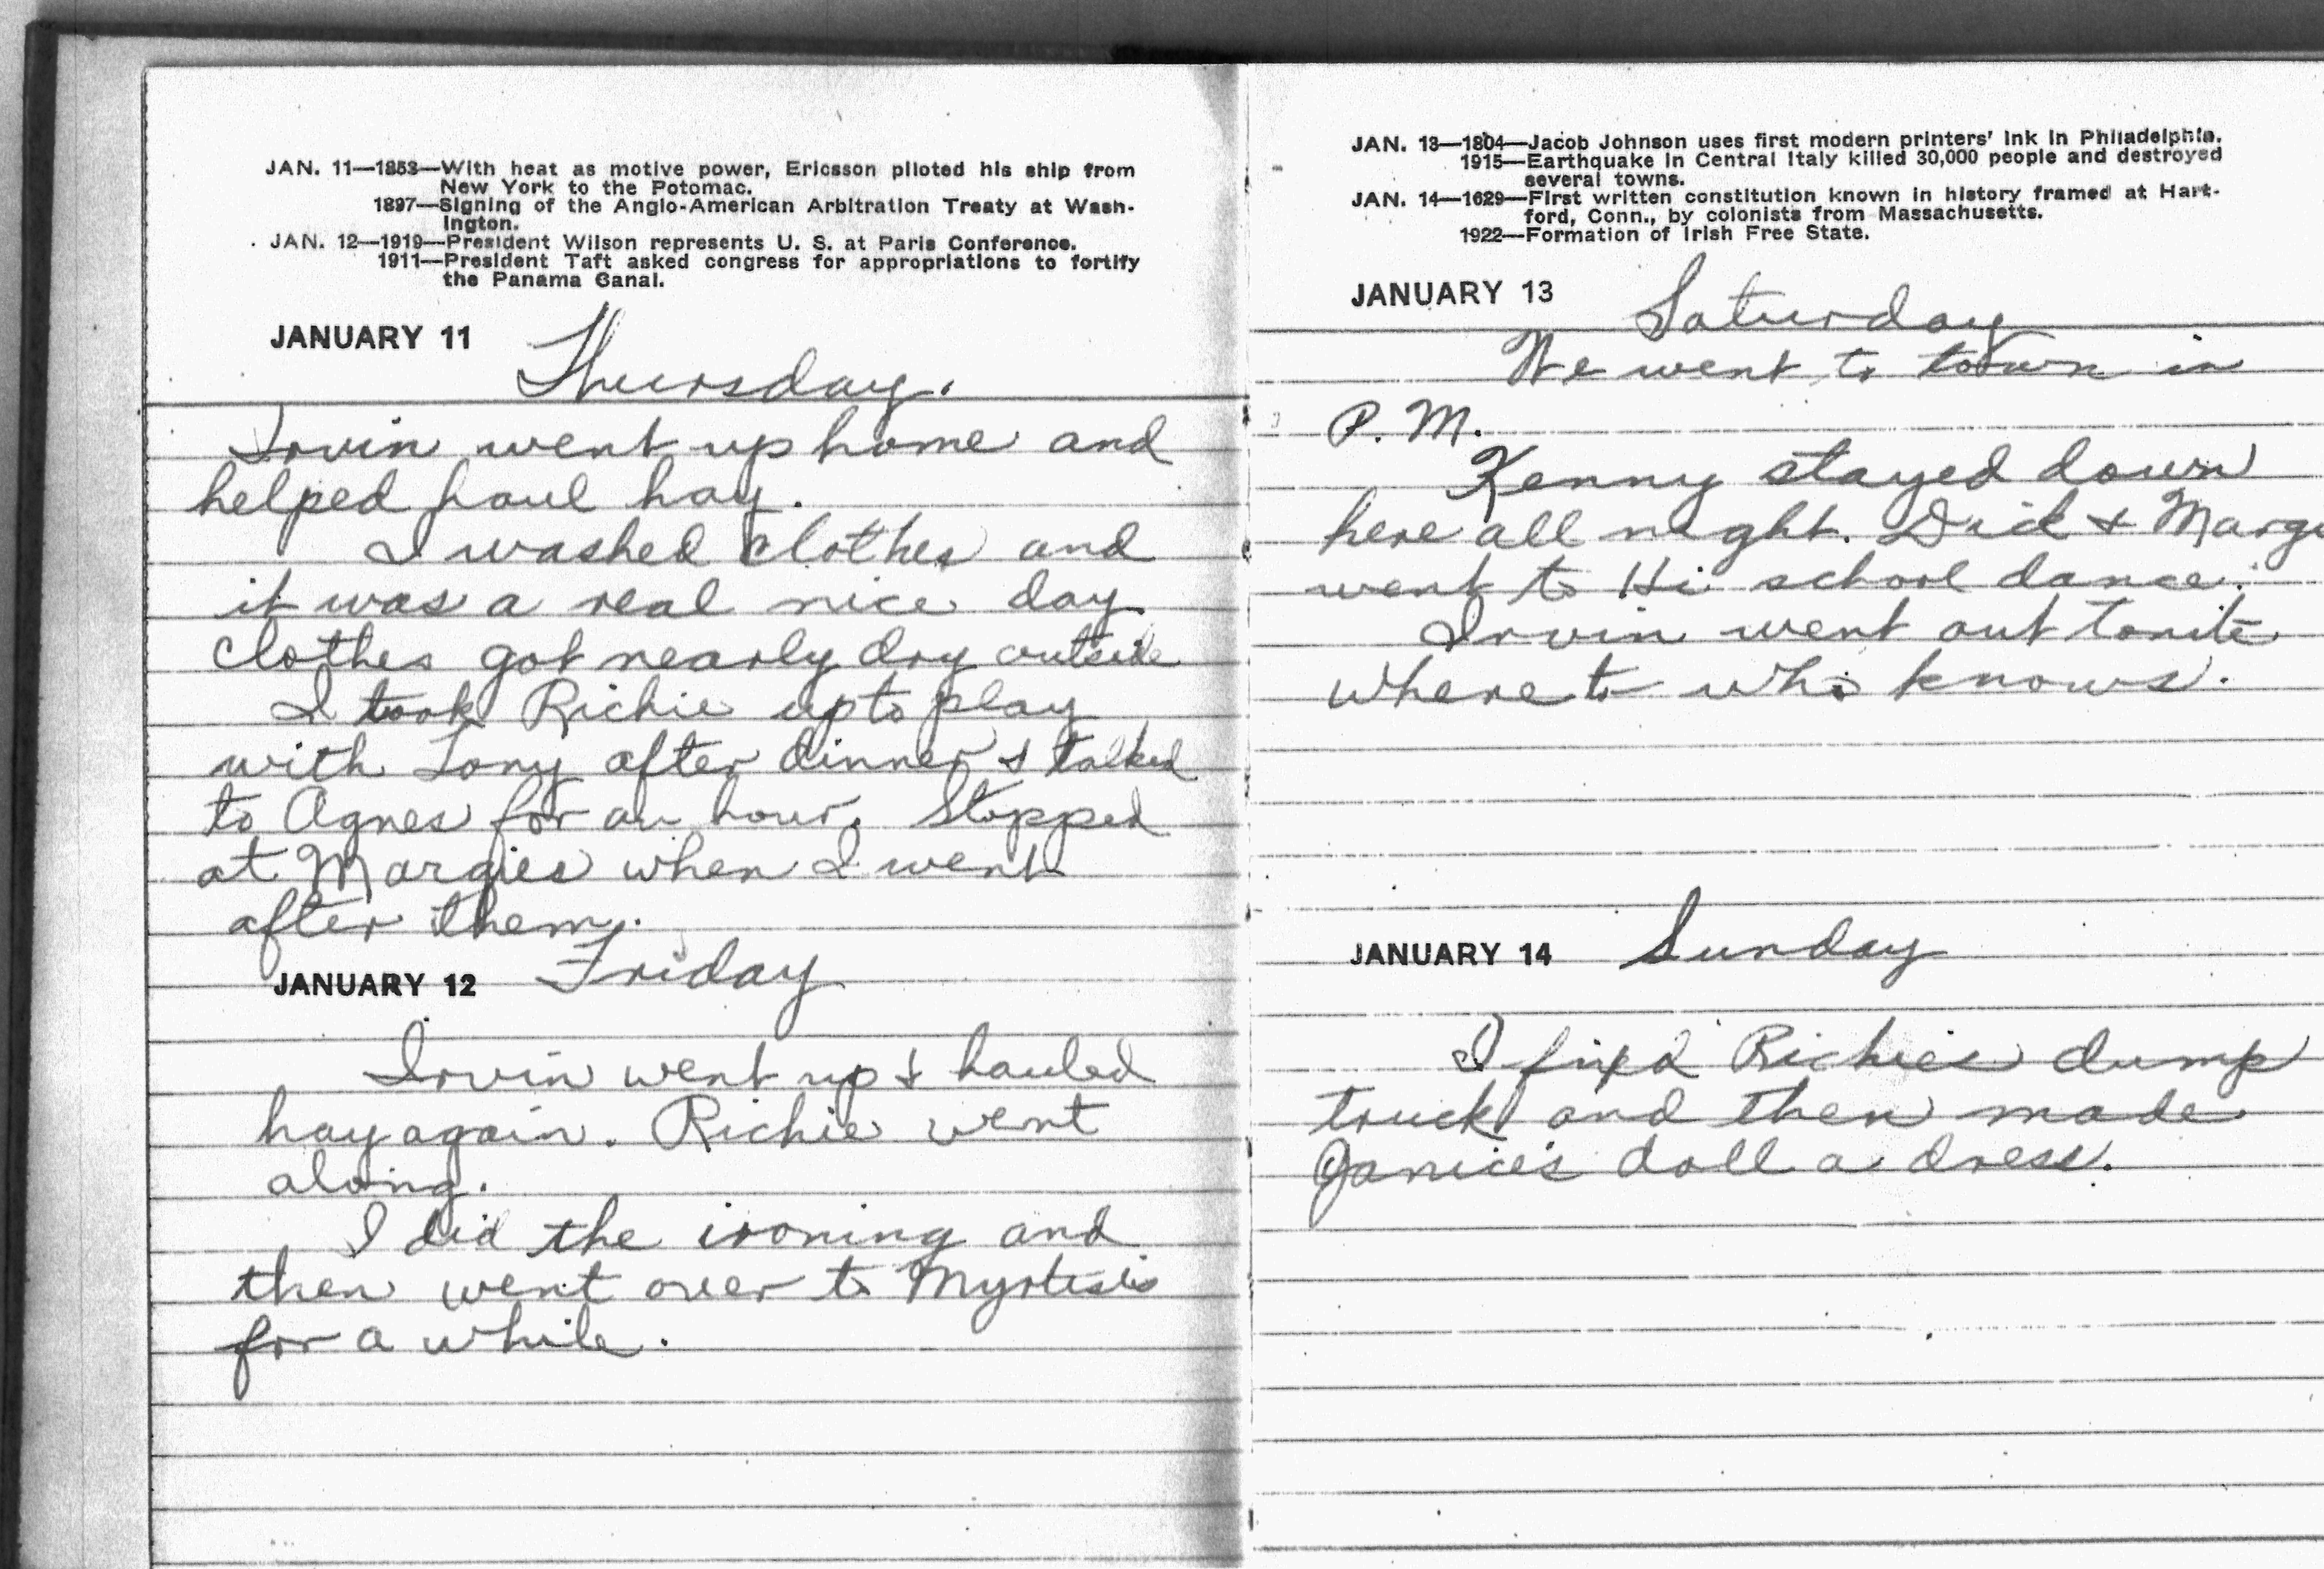 JAN. 11—1853—With heat as motive power, Ericsson piloted his ship from
New York to the Potomac.
1897—Signing of the Anglo-American Arbitration Treaty at Wash-
ington.
JAN. 12—1919—President Wilson represents U. S. at Paris Conference.
1911—President Taft asked congress for appropriations to fortify
the Panama Canal.
JANUARY 11 Thursday.
Irvin went up home and
helped haul hay.
I washed clothes and
it was a real nice day
clothes got nearly dry outside
I took Richie up to play
with Tony after dinner & talked
to Agnes for an hour. Stopped
at Margies when I went
after them.
JANUARY 12 Friday
Irvin went up & hauled
hay again. Richie went
along.
I did the ironing and
then went over to
for a while.
JAN. 13—1804—Jacob Johnson uses first modern printers' ink in Philadelphia.
1915—Earthquake in Central Italy killed 30,000 people and destroyed
several towns.
JAN. 14—1629—First written constitution known in history framed at Hart-
ford, Conn., by colonists from Massachusetts.
1922—Formation of Irish Free State.
JANUARY 13 Saturday
We went to town in
P. M.
Kenny stayed down
here all night. Dick & Marg
went to Hi school dance.
Irvin went out tonite
where to who knows.
JANUARY 14 Sunday
I fixed Richies dump
truck and then made
Janice's doll a dress.